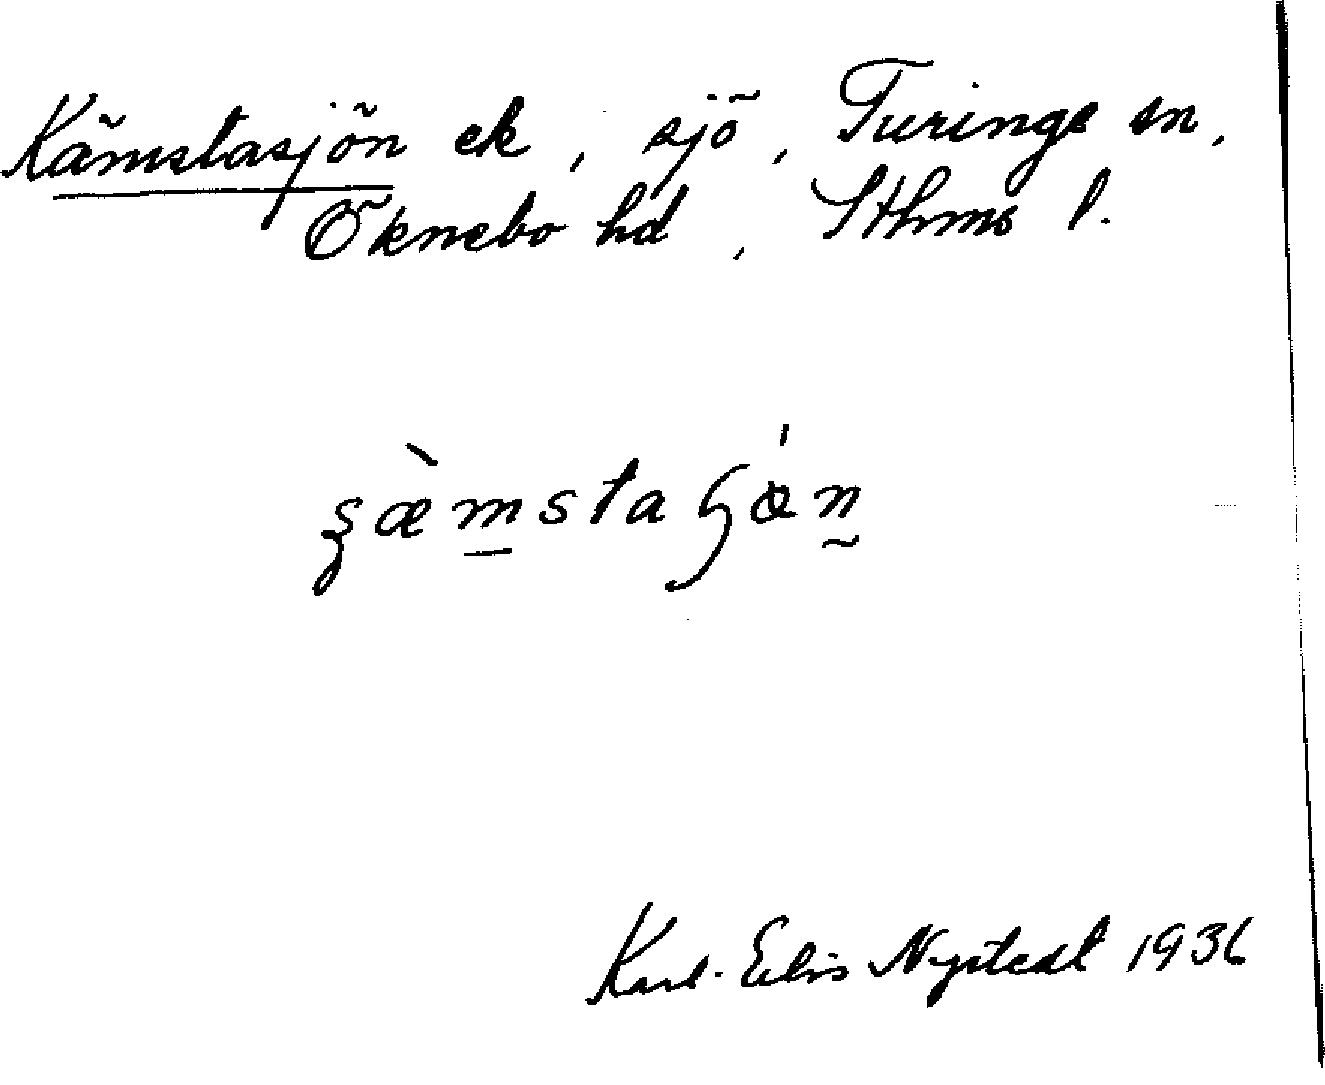 Kämstasjön ek, sjö, Turinge sn,
Öknebo hd, Sthms l.
ʂæ̀m̲staɧǿn̰
Karl-Elis Nystedt 1936